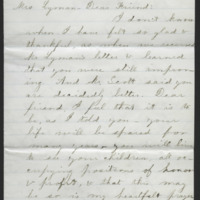 Mrs. Lyman Dear Friend:
I don't know
when I have felt so glad &
thankful, as when we received
Lyman letter & learned
that you were still improv-
ing. And Mr Scott said you
are decidedly better. Dear
friend, I feel that it is to
be, as I told you - your
life will be spared for
many years & you will live
to see your children, all oc-
cupying positions of honor
& profit, & that this may
be so is my heartfelt prayer